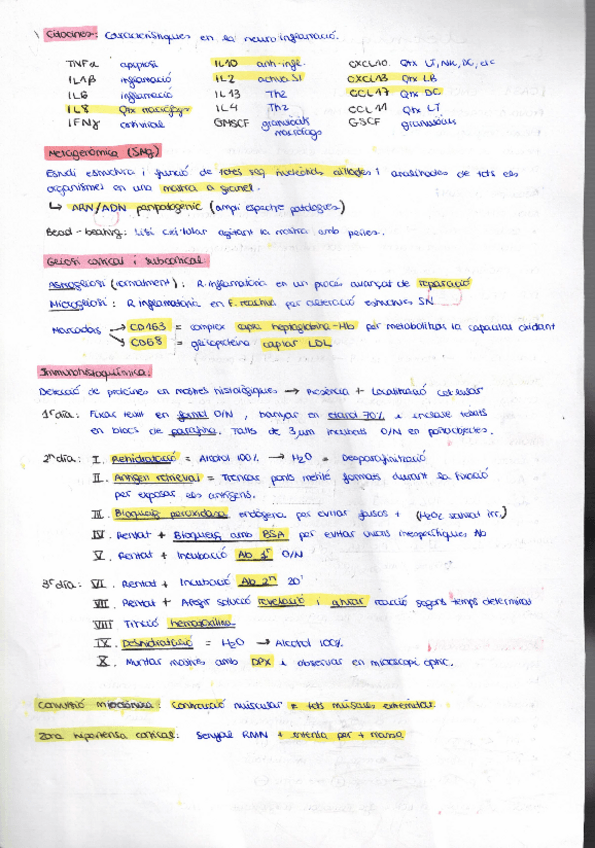 Citocines: Característiques en la neuroinflamació.
TNFα apoptosi IL10 anti-infl. CXCL10 Qtx LT, NK, DC, etc
IL1β inflamació IL2 activa SI CXCL13 Qtx LB
IL6 inflamació IL13 Th2 CCL17 Qtx DC
IL8 Qtx macròfags IL4 Th2 CCL11 Qtx LT
IFNγ antiviral GMSCF granulòcits macròfags GSCF granulòcits
Metagenòmica (SMg)
Estudi estructura i funció de totes seq nucleòtids aïllades i analitzades de tots els
organismes en una mostra a granel.
↳ ARN/ADN panpatogènic (ampli espectre patògens)
Bead-beating: Lisi cel·lular agitant la mostra amb perles.
Gliosi cortical i subcortical
Astrogliosi (normalment): R. inflamatòria en un procés avançat de reparació
Microgliosi: R. inflamatòria en F. reactiva per alteració estructures SN
Marcadors → CD163 = complex capta haptoglobina-Hb per metabolitzar la capacitat oxidant
↘ CD68 = glicoproteïna captar LDL
Immunohistoquímica:
Detecció de proteïnes en mostres histològiques → Presència + Localització cel·lular
1r dia: Fixar teixit en formol O/N, banyar en etanol 70% i incloure teixits
en blocs de parafina. Talls de 3 μm incubats O/N en portaobjectes.
2n dia: I. Rehidratació = Alcohol 100% → H2O = Desparafinització
II. Antigen retrieval = Trencar ponts metilè formats durant la fixació
per exposar els antígens.
III. Bloqueig peroxidasa endògena per evitar falsos + (H2O2
IV. Rentat + Bloqueig amb BSA per evitar unions inespecífiques Ab
V. Rentat + Incubació Ab 1r O/N
3r dia: VI. Rentat + Incubació Ab 2n 20'
VII. Rentat + Afegir solució revelació i aturar reacció segons temps determinat
VIII Tinció hematoxilina.
IX. Deshidratació = H2O → Alcohol 100%
X. Muntar mostres amb DPX i observar en microscopi òptic.
Convulsió mioclònica: Contracció muscular = tots músculs extremitat.
Zona hipertensa cortical: Senyal RMN + intensa per + massa